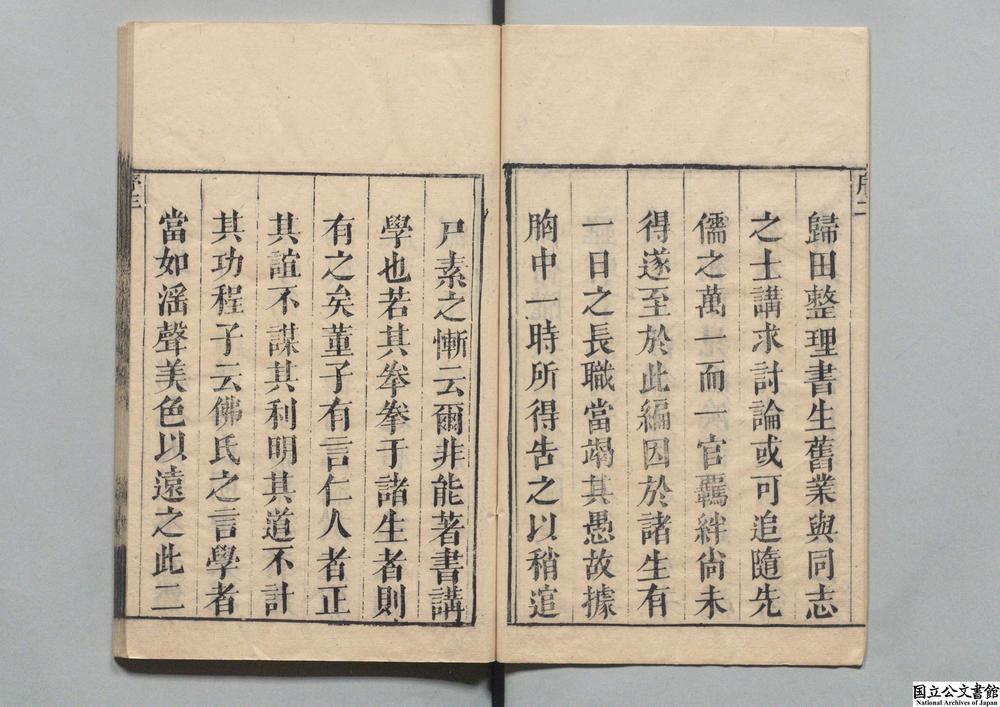 序二
歸田整理書生舊業與同志
之士講求討論或可追隨先
儒之萬一而一官羈絆尙未
得遂至於此編因於諸生有
一日之長職當竭其愚故據
胸中一時所得吿之以稍逭
尸素之慚云爾非能著書講
學也若其拳拳于諸生者則
有之矣董子有言仁人者正
其誼不謀其利明其道不計
其功程子云佛氏之言學者
當如淫聲美色以遠之此二
序三
国立公文書館
National Archives of Japan